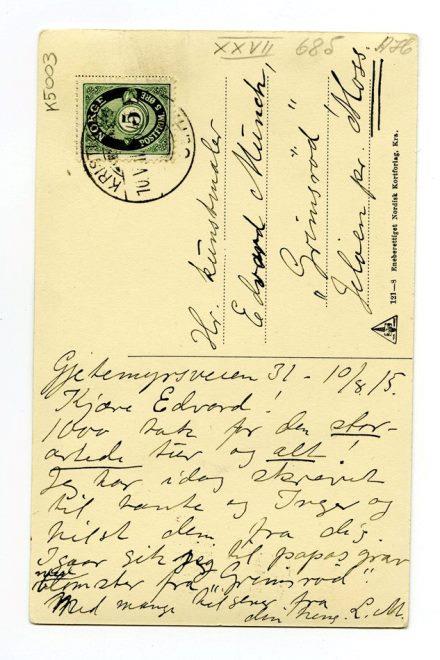 K5003
XXVII 685
NORGE
POSTFRIM. 5 ØRE
5
KRIS
Hr. kunstmaler
Edvard Munch,
"Grimsrød"
Jeløen pr. Moss.
121-8 Eneberettiget Nordisk Kortforlag, Kra.
Gjetemyrsveien 31 - 10/8 15.
Kjære Edvard!
1000 takk for den stor-
artede tur og alt!
Jeg har idag skrevet
til tante og Inger og
hilst dem fra dig.
Igaar gik jeg til papas grav
med blomster fra "Grimsrød".
Med mange hilsener fra
din L. M.